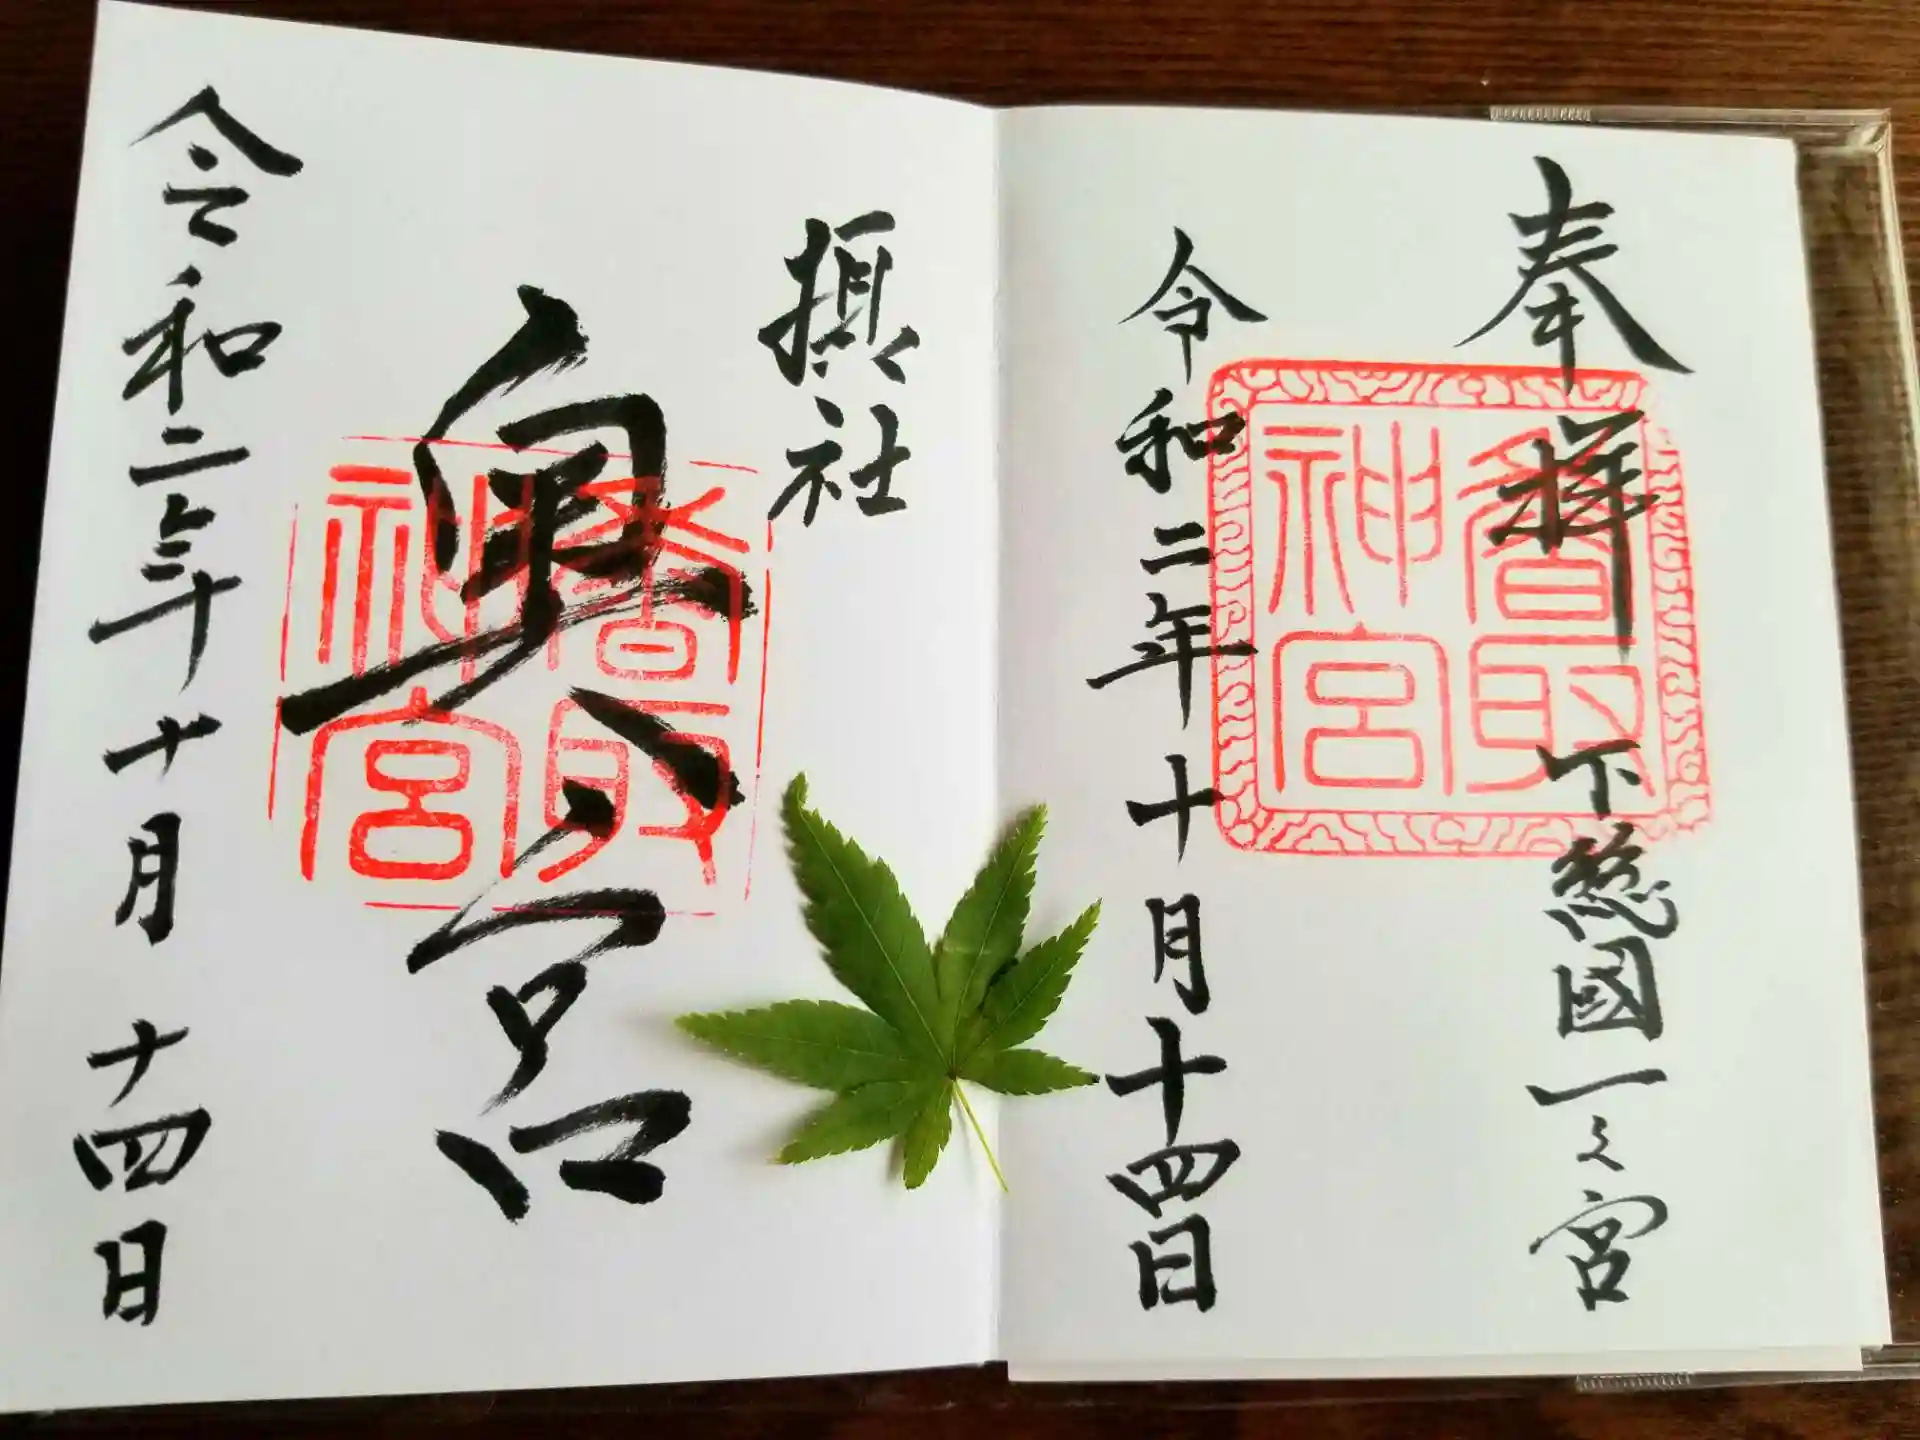 奉拝
下総國一之宮
香取神宮
令和二年十月十四日
摂社
奥宮
香取神宮
令和二年十月十四日